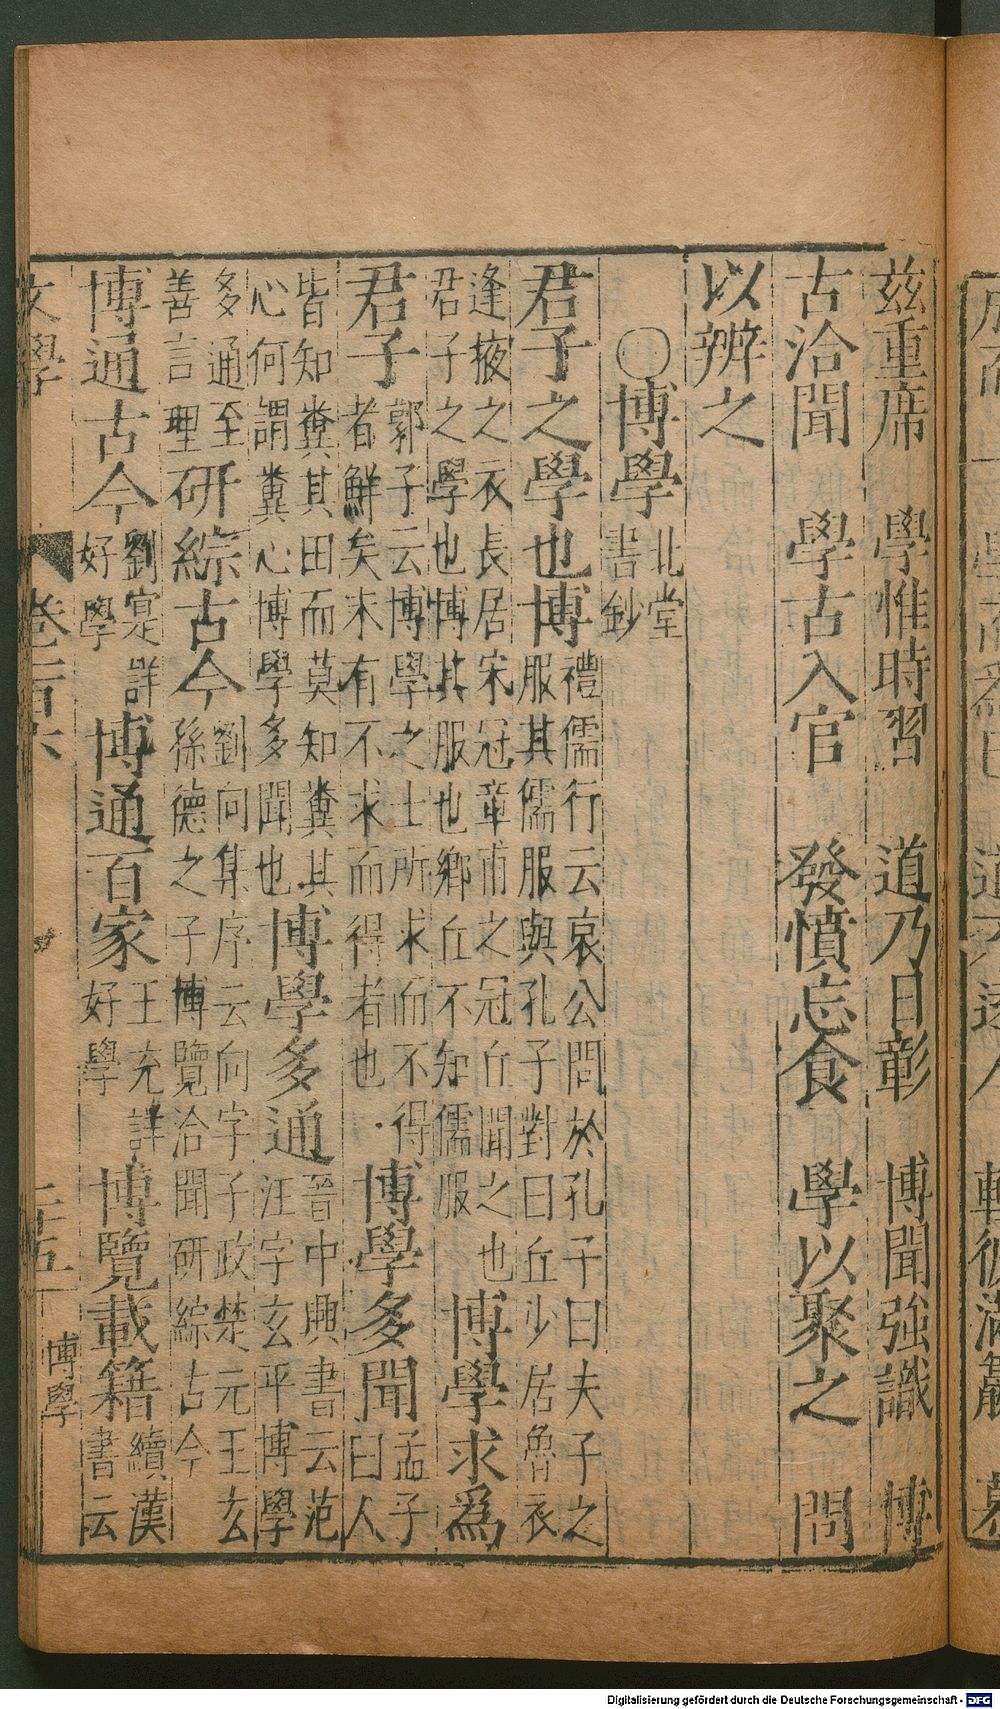 茲重席　學惟時習　道乃日彰　博聞強識　博
古洽聞　學古入官　發憤忘食　學以聚之　問
以辨之
○博學 北堂書鈔
君子之學也博 禮儒行云哀公問於孔子曰夫子之服其儒服與孔子對曰丘少居魯衣
逢掖之衣長居宋冠章甫之冠丘聞之也君子之學也博其服也鄉丘不知儒服 博學求爲
君子 郭子云博學之士所求而不得者鮮矣未有不求而得者也 博學多聞 孟子曰人
皆知糞其田而莫知糞其心何謂糞心博學多聞也 博學多通 晉中興書云范汪字玄平博學
多通至善言理 研綜古今 劉向集序云向字子政楚元王玄孫德之子博覽洽聞研綜古今
博通古今 劉寔詳好學 博通百家 王充詳好學 博覽載籍 續漢書云
文學 二十五 博學
Digitalisierung gefördert durch die Deutsche Forschungsgemeinschaft - DFG